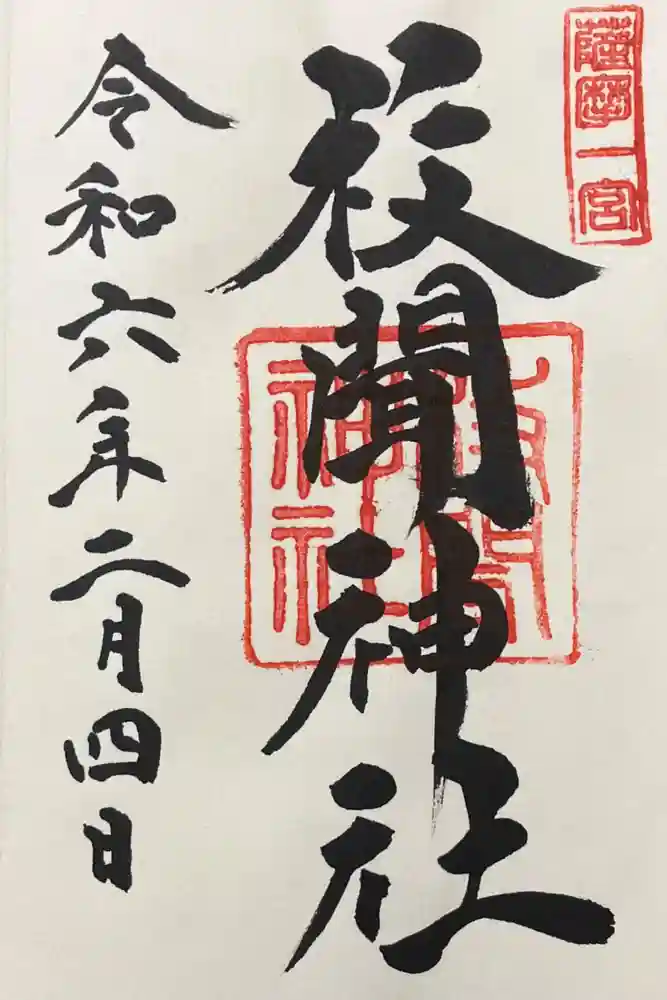 薩摩一宮
枚聞神社
枚聞神社
令和六年二月四日